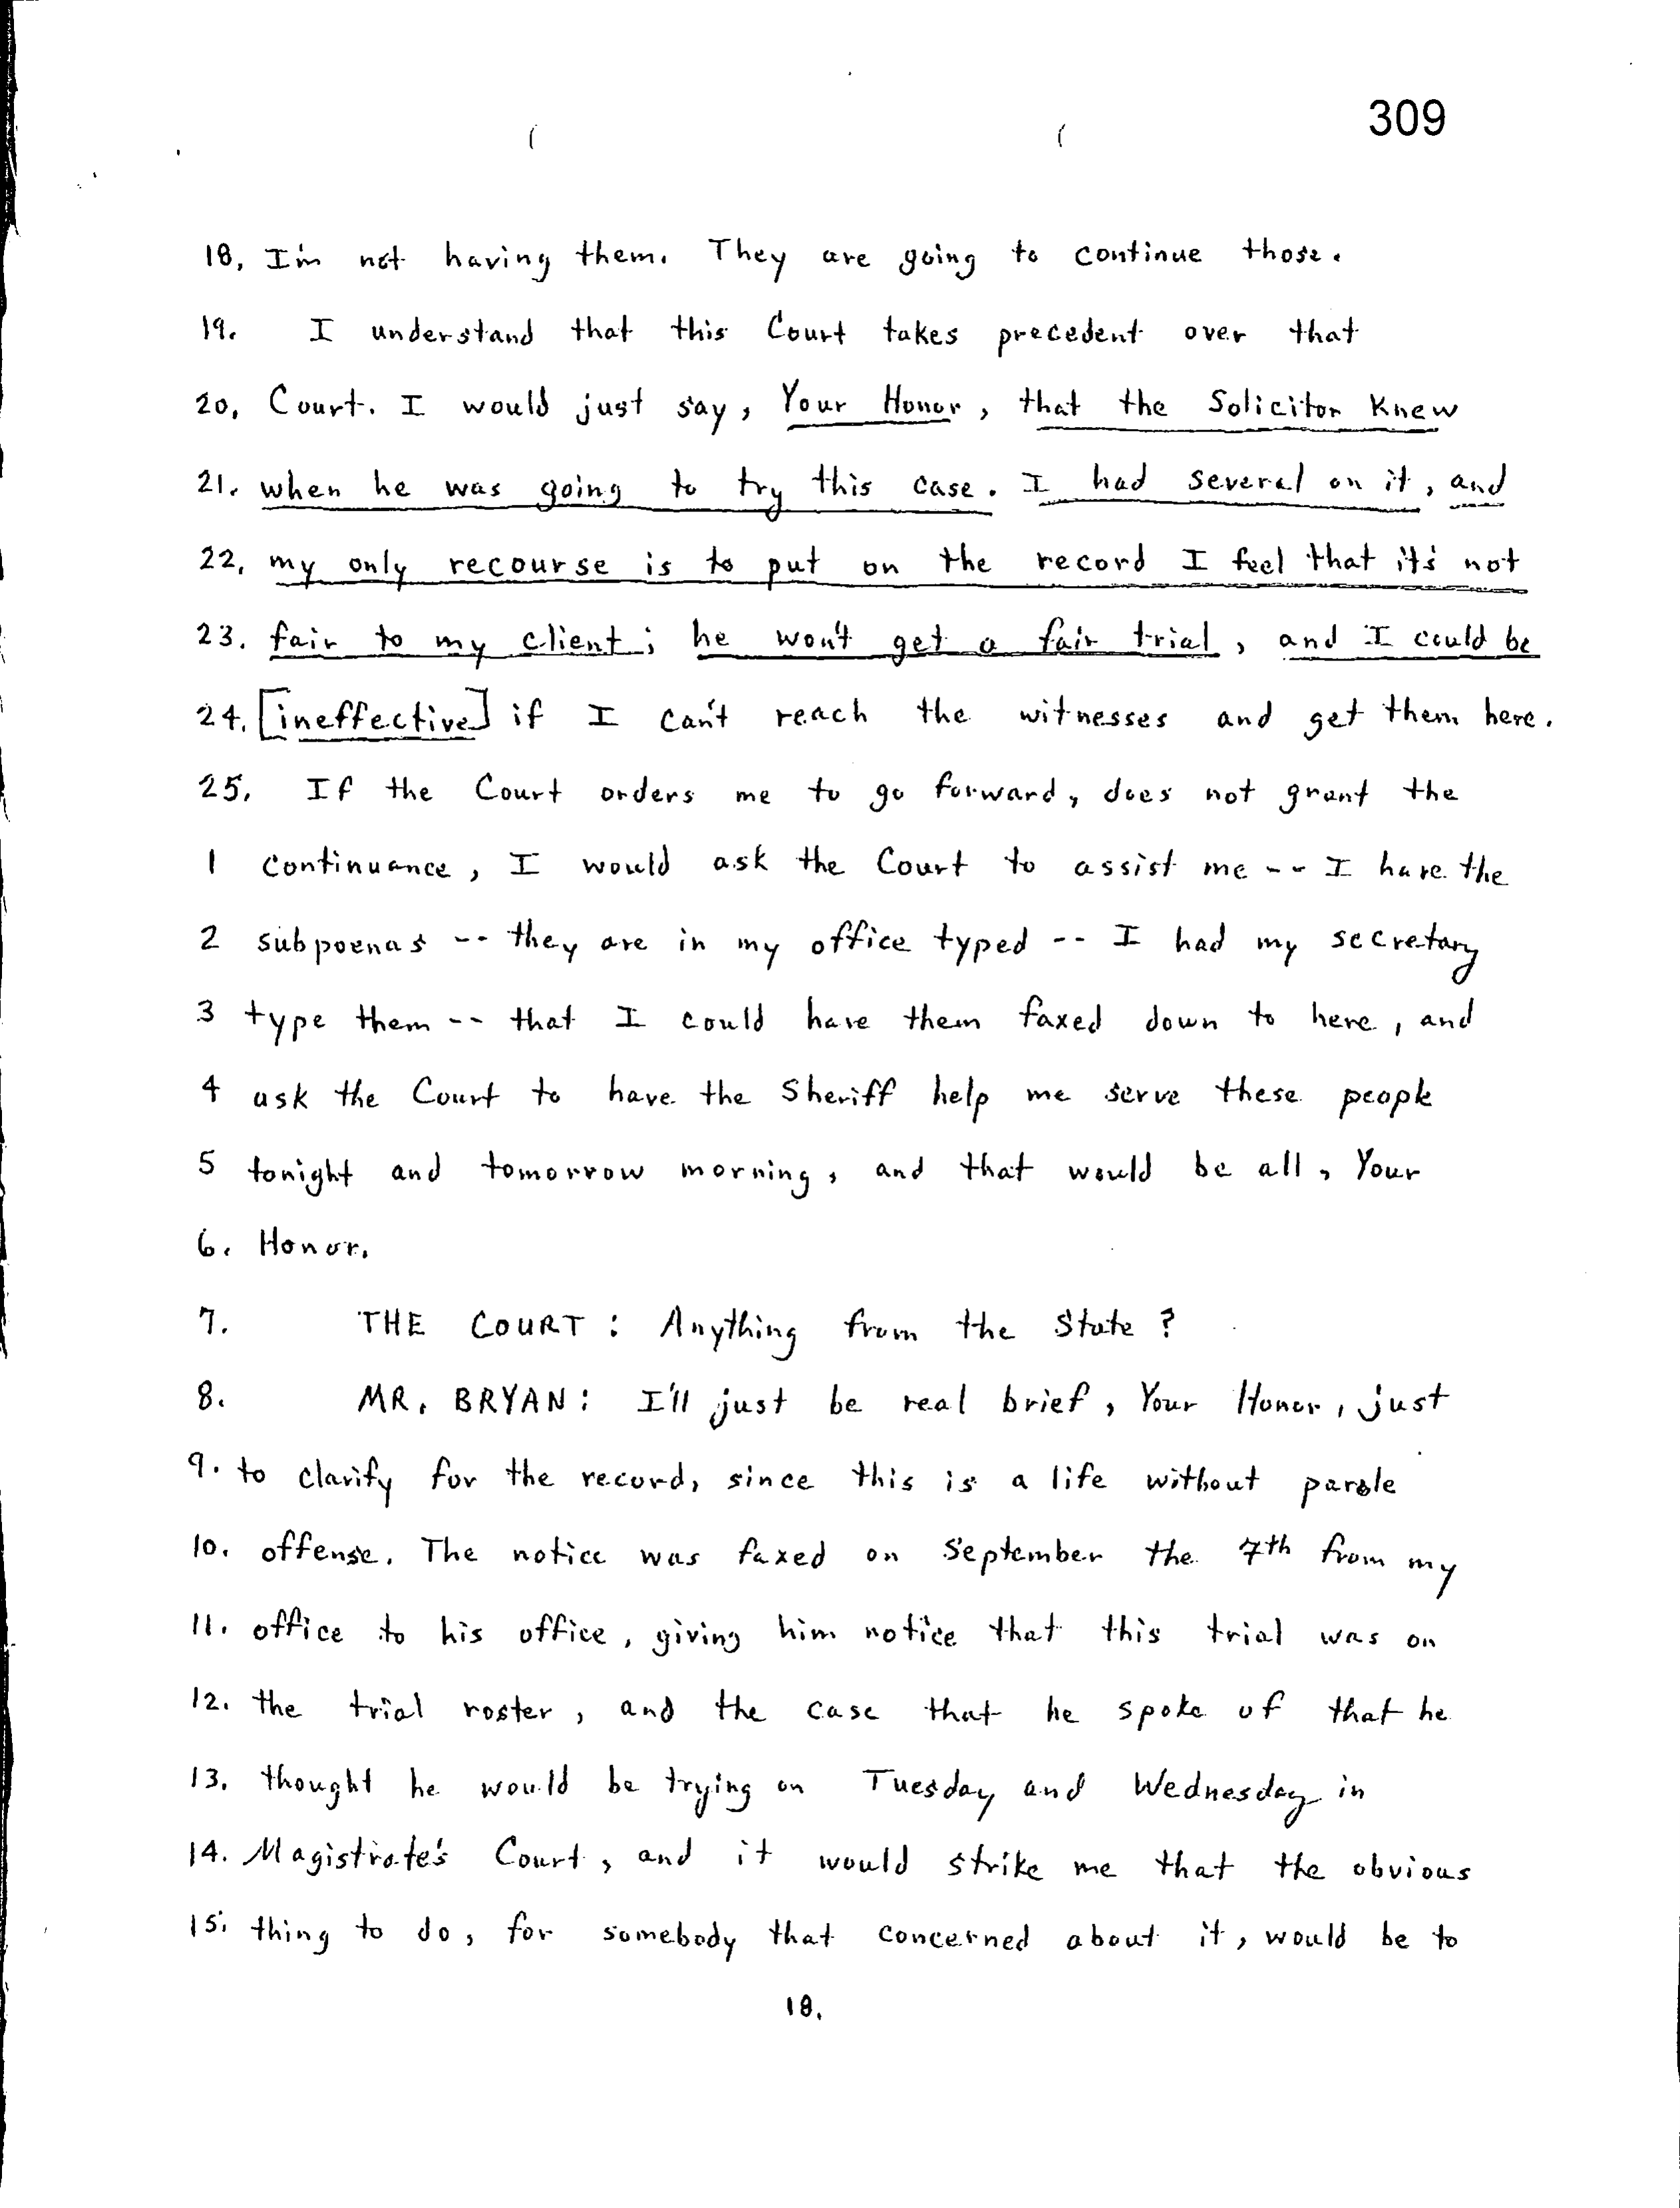 309
18. I'm not having them. They are going to continue those.
19. I understand that this Court takes precedent over that
20. Court. I would just say, Your Honor, that the Solicitor Knew
21. when he was going to try this case. I had several on it, and
22. my only recourse is to put on the record I feel that it's not
23. fair to my client; he won't get a fair trial, and I could be
24. [ineffective] if I can't reach the witnesses and get them here.
25. If the Court orders me to go forward, does not grant the
1 continuance, I would ask the Court to assist me -- I have the
2 subpoenas -- they are in my office typed -- I had my secretary
3 type them -- that I could have them faxed down to here, and
4 ask the Court to have the Sheriff help me serve these people
5 tonight and tomorrow morning, and that would be all, Your
6. Honor.
7. THE COURT: Anything from the State?
8. MR. BRYAN: I'll just be real brief, Your Honor, just
9. to clarify for the record, since this is a life without parole
10. offense. The notice was faxed on September the 7th from my
11. office to his office, giving him notice that this trial was on
12. the trial roster, and the case that he spoke of that he
13. thought he would be trying on Tuesday and Wednesday in
14. Magistrate's Court, and it would strike me that the obvious
15. thing to do, for somebody that concerned about it, would be to
18.